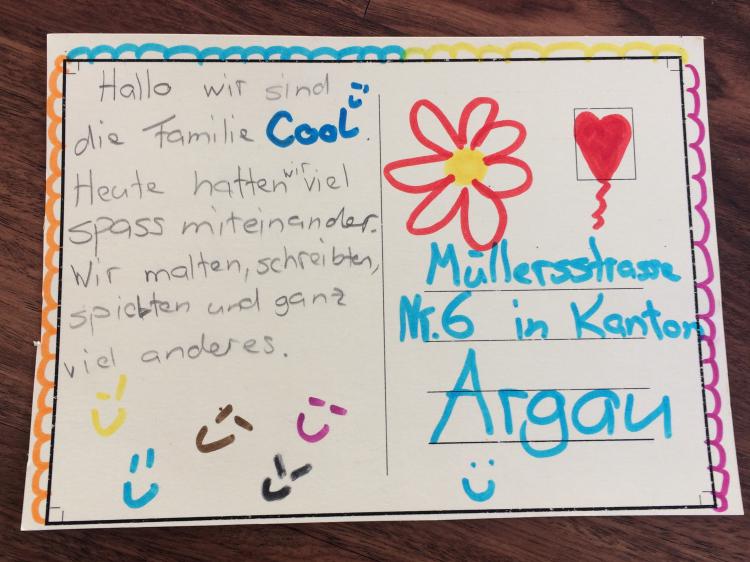 Hallo wir sind
die Familie Cool.
Heute hatten wir viel
spass miteinander.
Wir malten, schreibten,
spielten und ganz
viel anderes.
Müllersstrasse
Nr. 6 in Kanton
Argau